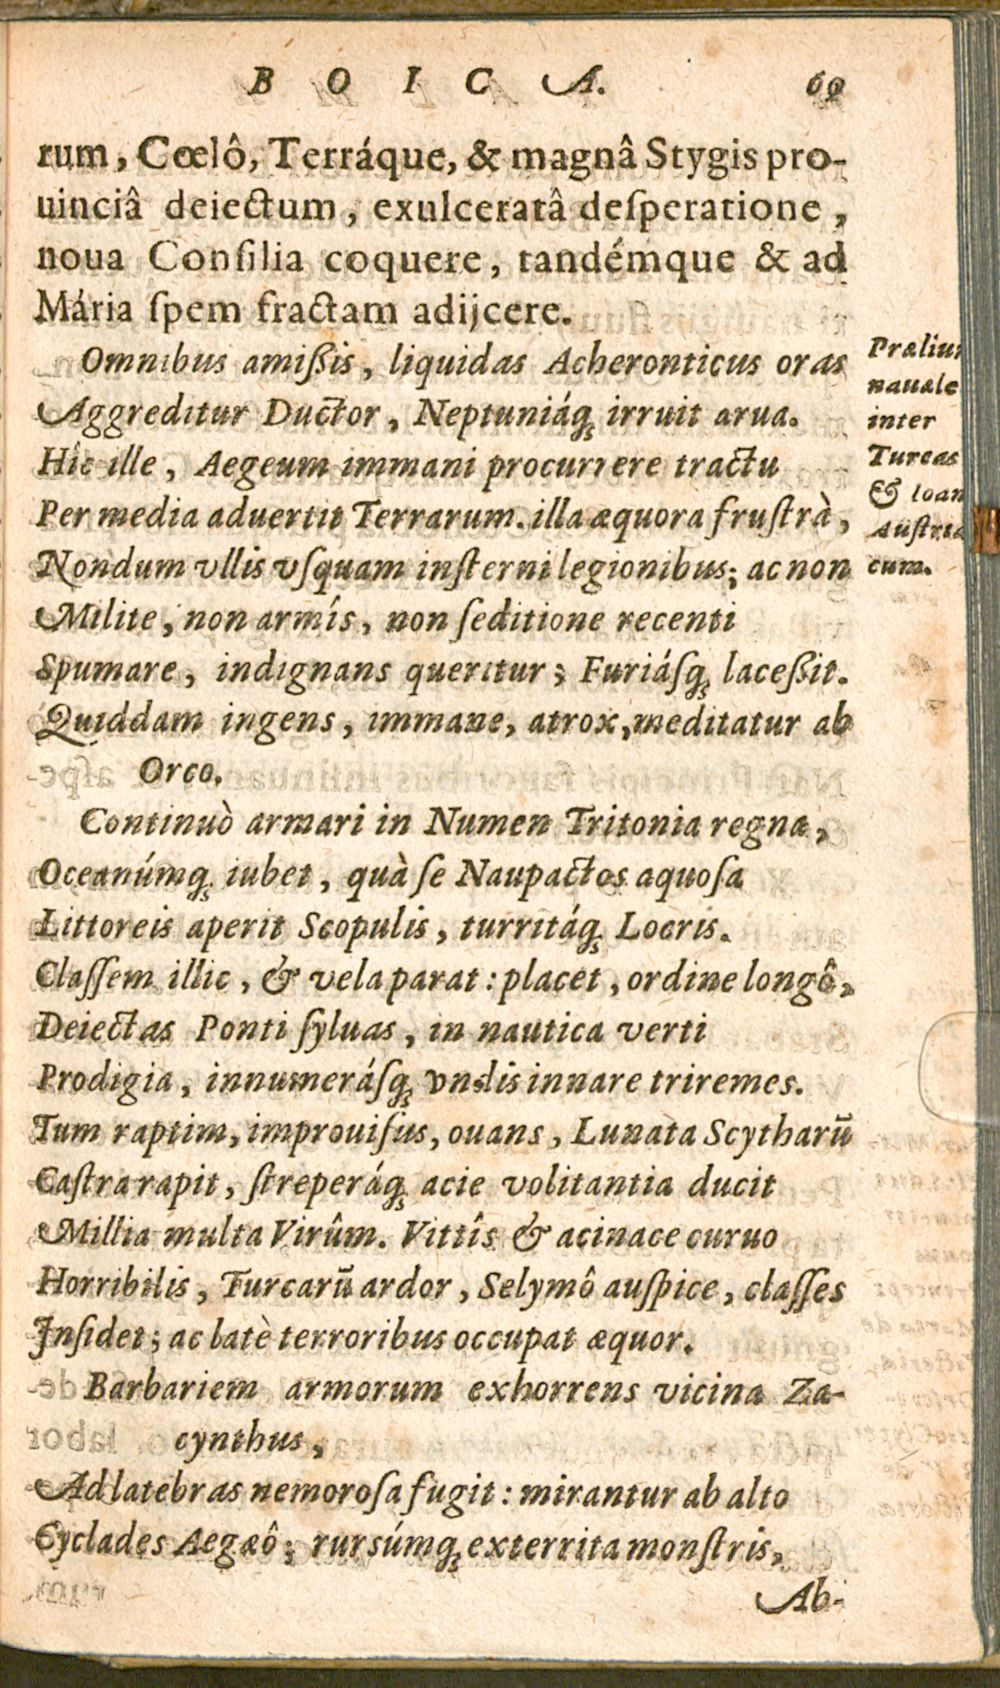 B O I C A. 69
rum, Cœlô, Terráque, & magnâ Stygis pro-
uinciâ deiectum, exulceratâ deſperatione,
noua Conſilia coquere, tandémque & ad
Mária ſpem fractam adijcere.
Omnibus amißis, liquidas Acheronticus oras
Aggreditur Ductor, Neptuniáq; irruit arua.
Hîc ille, Aegeum immani procurrere tractu
Per media aduertit Terrarum. illa æquora fruſtrà,
Nondum vllis vſquam inſterni legionibus; ac non
Milite, non armis, non ſeditione recenti
Spumare, indignans queritur; Furiáſq; laceßit.
Quiddam ingens, immane, atrox, meditatur ab
Orco.
Continuò armari in Numen Tritonia regna,
Oceanúmq; iubet, quà ſe Naupactos aquoſa
Littoreis aperit Scopulis, turritáq; Locris.
Claſſem illic, & vela parat: placet, ordine longô,
Deiectas Ponti ſyluas, in nautica verti
Prodigia, innumeráſq; vndis innare triremes.
Tum raptim, improuiſus, ouans, Lunata Scytharū
Caſtra rapit, ſtreperáq; acie volitantia ducit
Millia multa Virûm. Vittîs & acinace curuo
Horribilis, Turcarū ardor, Selymô auſpice, claſſes
Inſidet; ac latè terroribus occupat æquor.
Barbariem armorum exhorrens vicina Za-
cynthus,
Ad latebras nemoroſa fugit: mirantur ab alto
Cyclades Aegæô; rursúmq; exterrita monſtris,
Ab-
Præliu
nauale
inter
Turcas
& Ioan
Auſtria
cum.